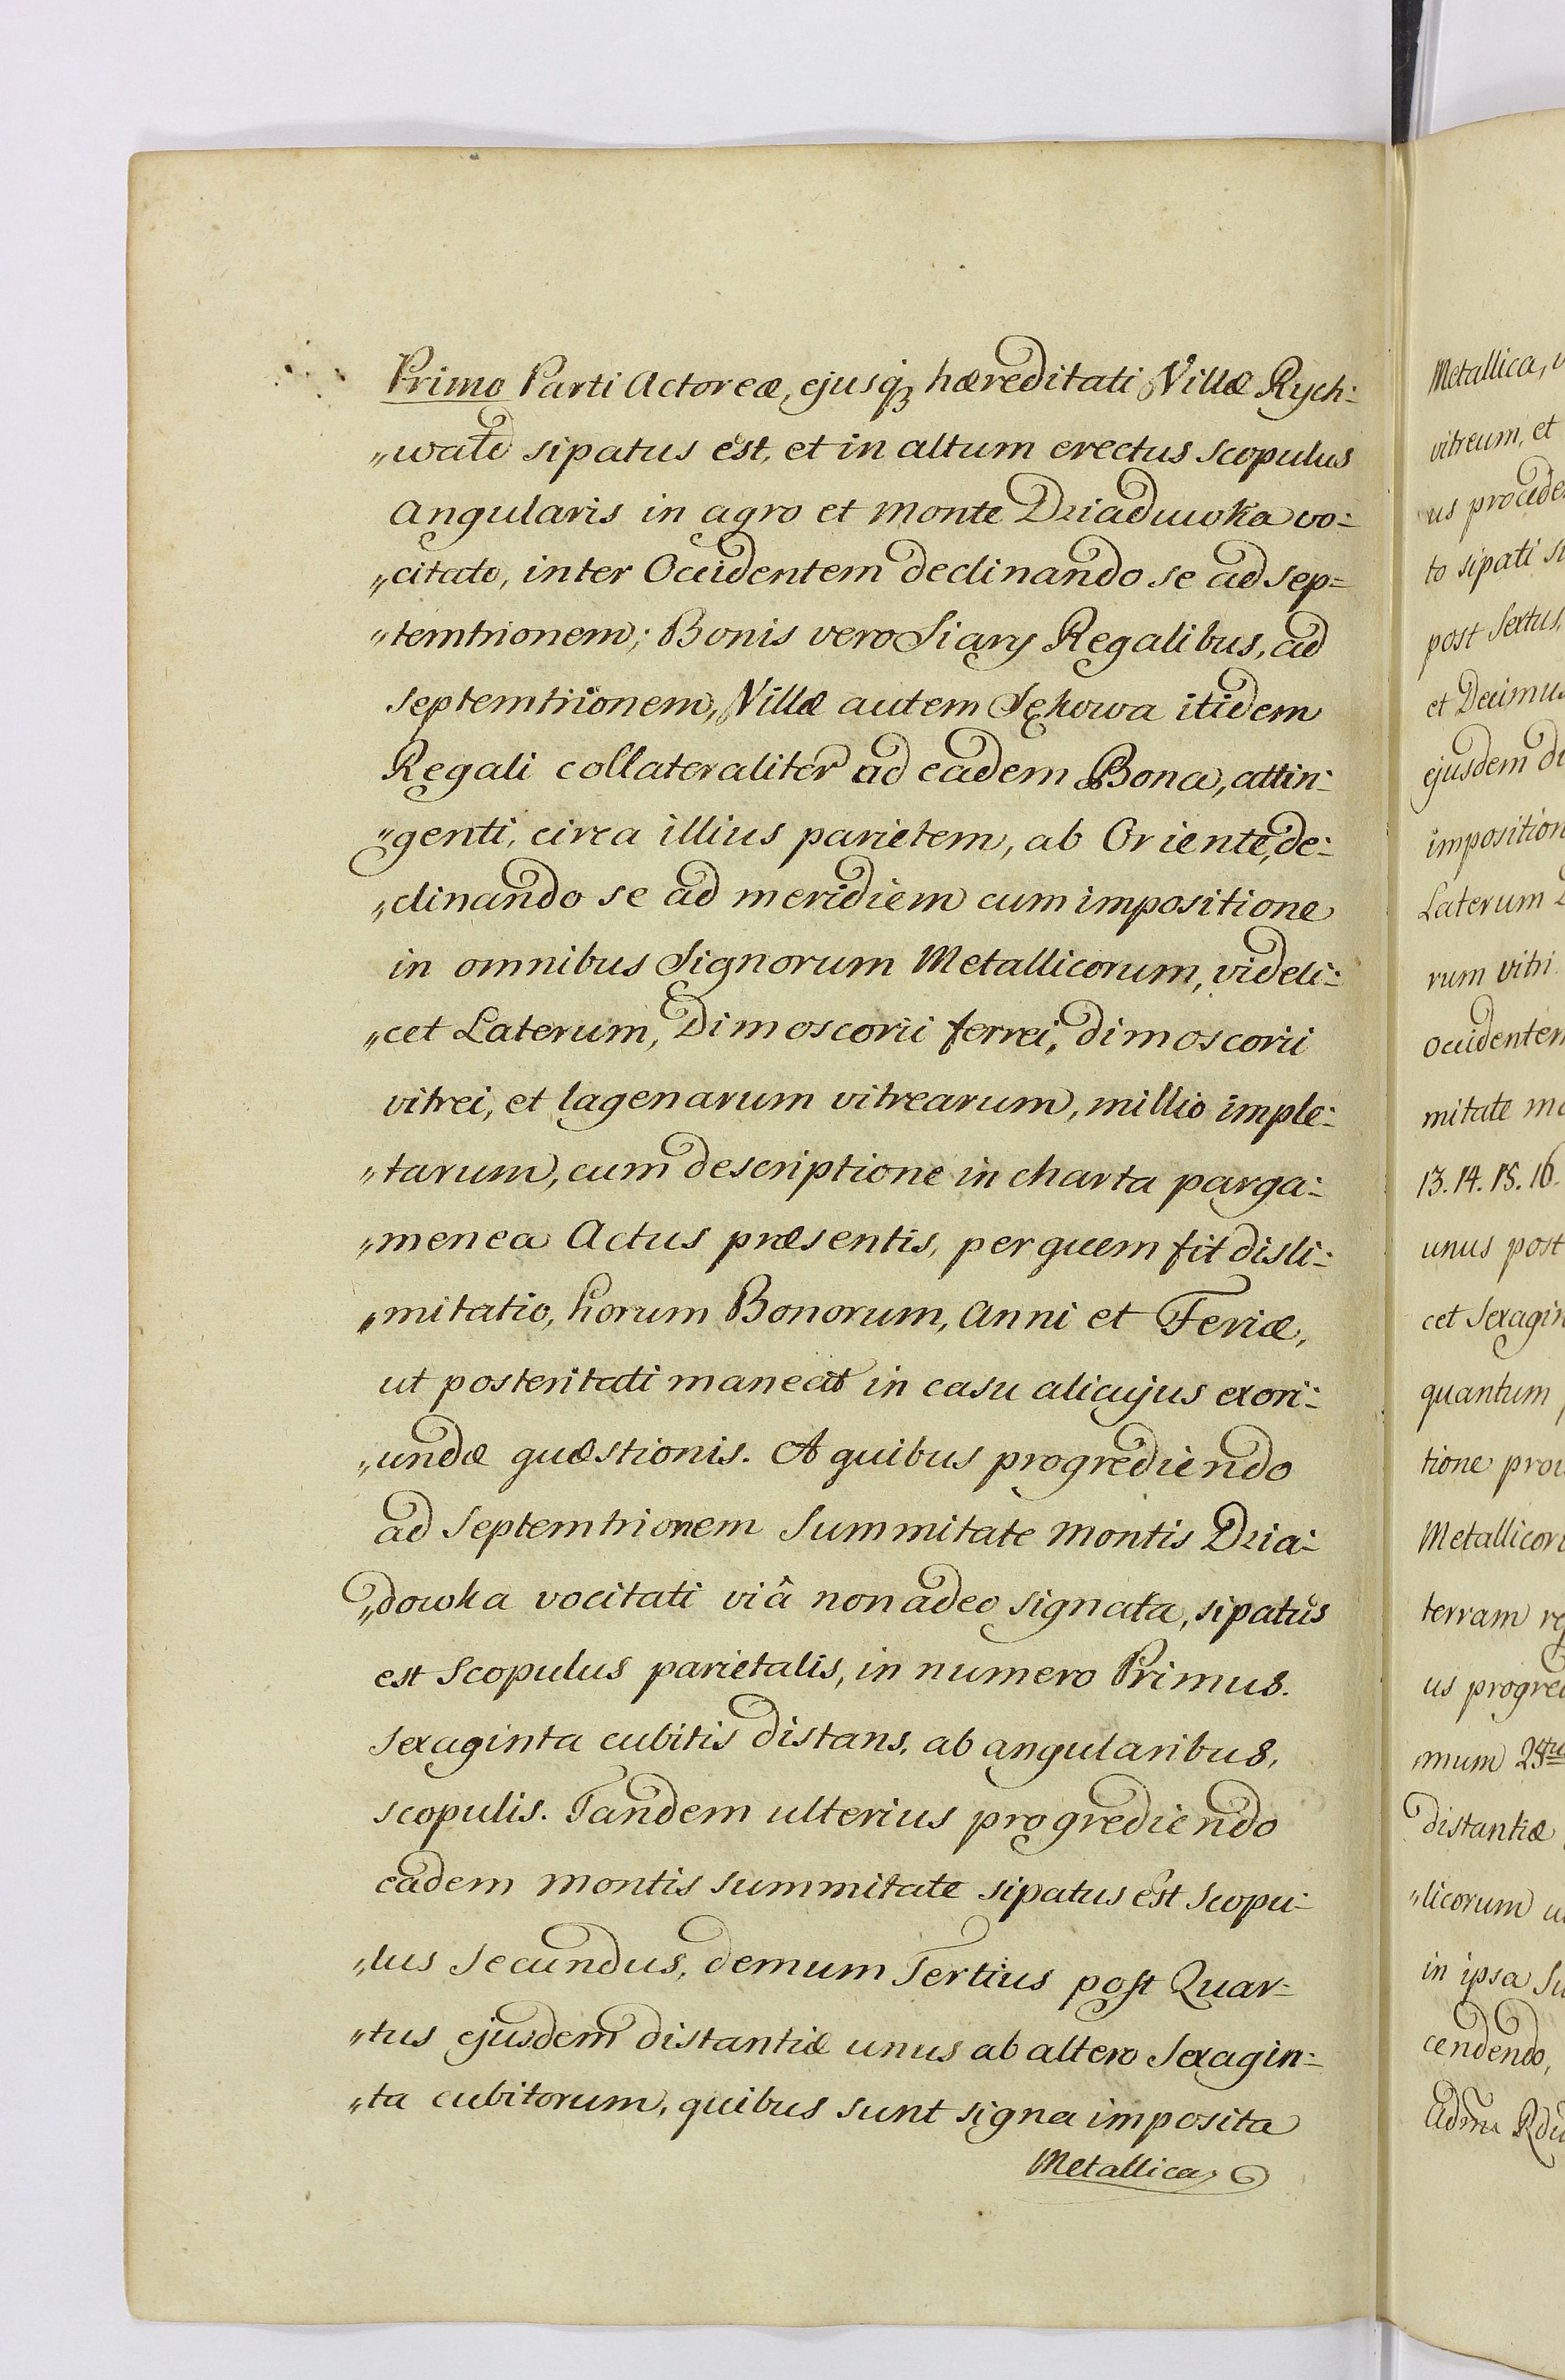 Primo Parti Actoreæ, ejusq; hæreditati Villæ Rych=
„wald sipatus est, et in altum erectus scopulus
Angularis in agro et monte Dziaduwka vo=
„citato, inter Occidentem declinando se ad sep=
„temtrionem; Bonis vero Siary Regalibus, ad
septemtrionem, Villæ autem Sękowa itidem
Regali collateraliter ad eadem Bona, attin=
„genti, circa illius parietem, ab Oriente, de=
„clinando se ad meridiem cum impositione
in omnibus Signorum Metallicorum, videli=
„cet Laterum, Dimoscorii ferrei, dimoscorii
vitrei, et lagenarum vitrearum, millio imple=
„tarum, cum descriptione in charta parga=
„menea Actus præsentis, per quem fit disli=
„mitatio, horum Bonorum, Anni et Feriæ,
ut posteritati maneat in casu alicujus exori=
„undæ quæstionis. A quibus progrediendo
ad Septemtrionem Summitate Montis Dzia=
„dowka vocitati viâ non adeo signata, sipatus
est Scopulus parietalis, in numero Primus.
Sexaginta cubitis distans, ab angularibus,
scopulis. Tandem ulterius progrediendo
eadem Montis summitate sipatus est Scopu=
„lus Secundus, demum Tertius post Quar=
„tus ejusdem distantiæ unus ab altero Sexagin=
„ta cubitorum, quibus sunt signa imposita
Metallica,
Metallica,
vitreum, et
us
to sipati
post Sextus,
et
ejusdem
Laterum
rum vitri
mitate
13. 14. 15. 16.
unus post
cet
quantum
tione
terram
us
mum
distantiæ
„licorum
in ipsa
cendendo,